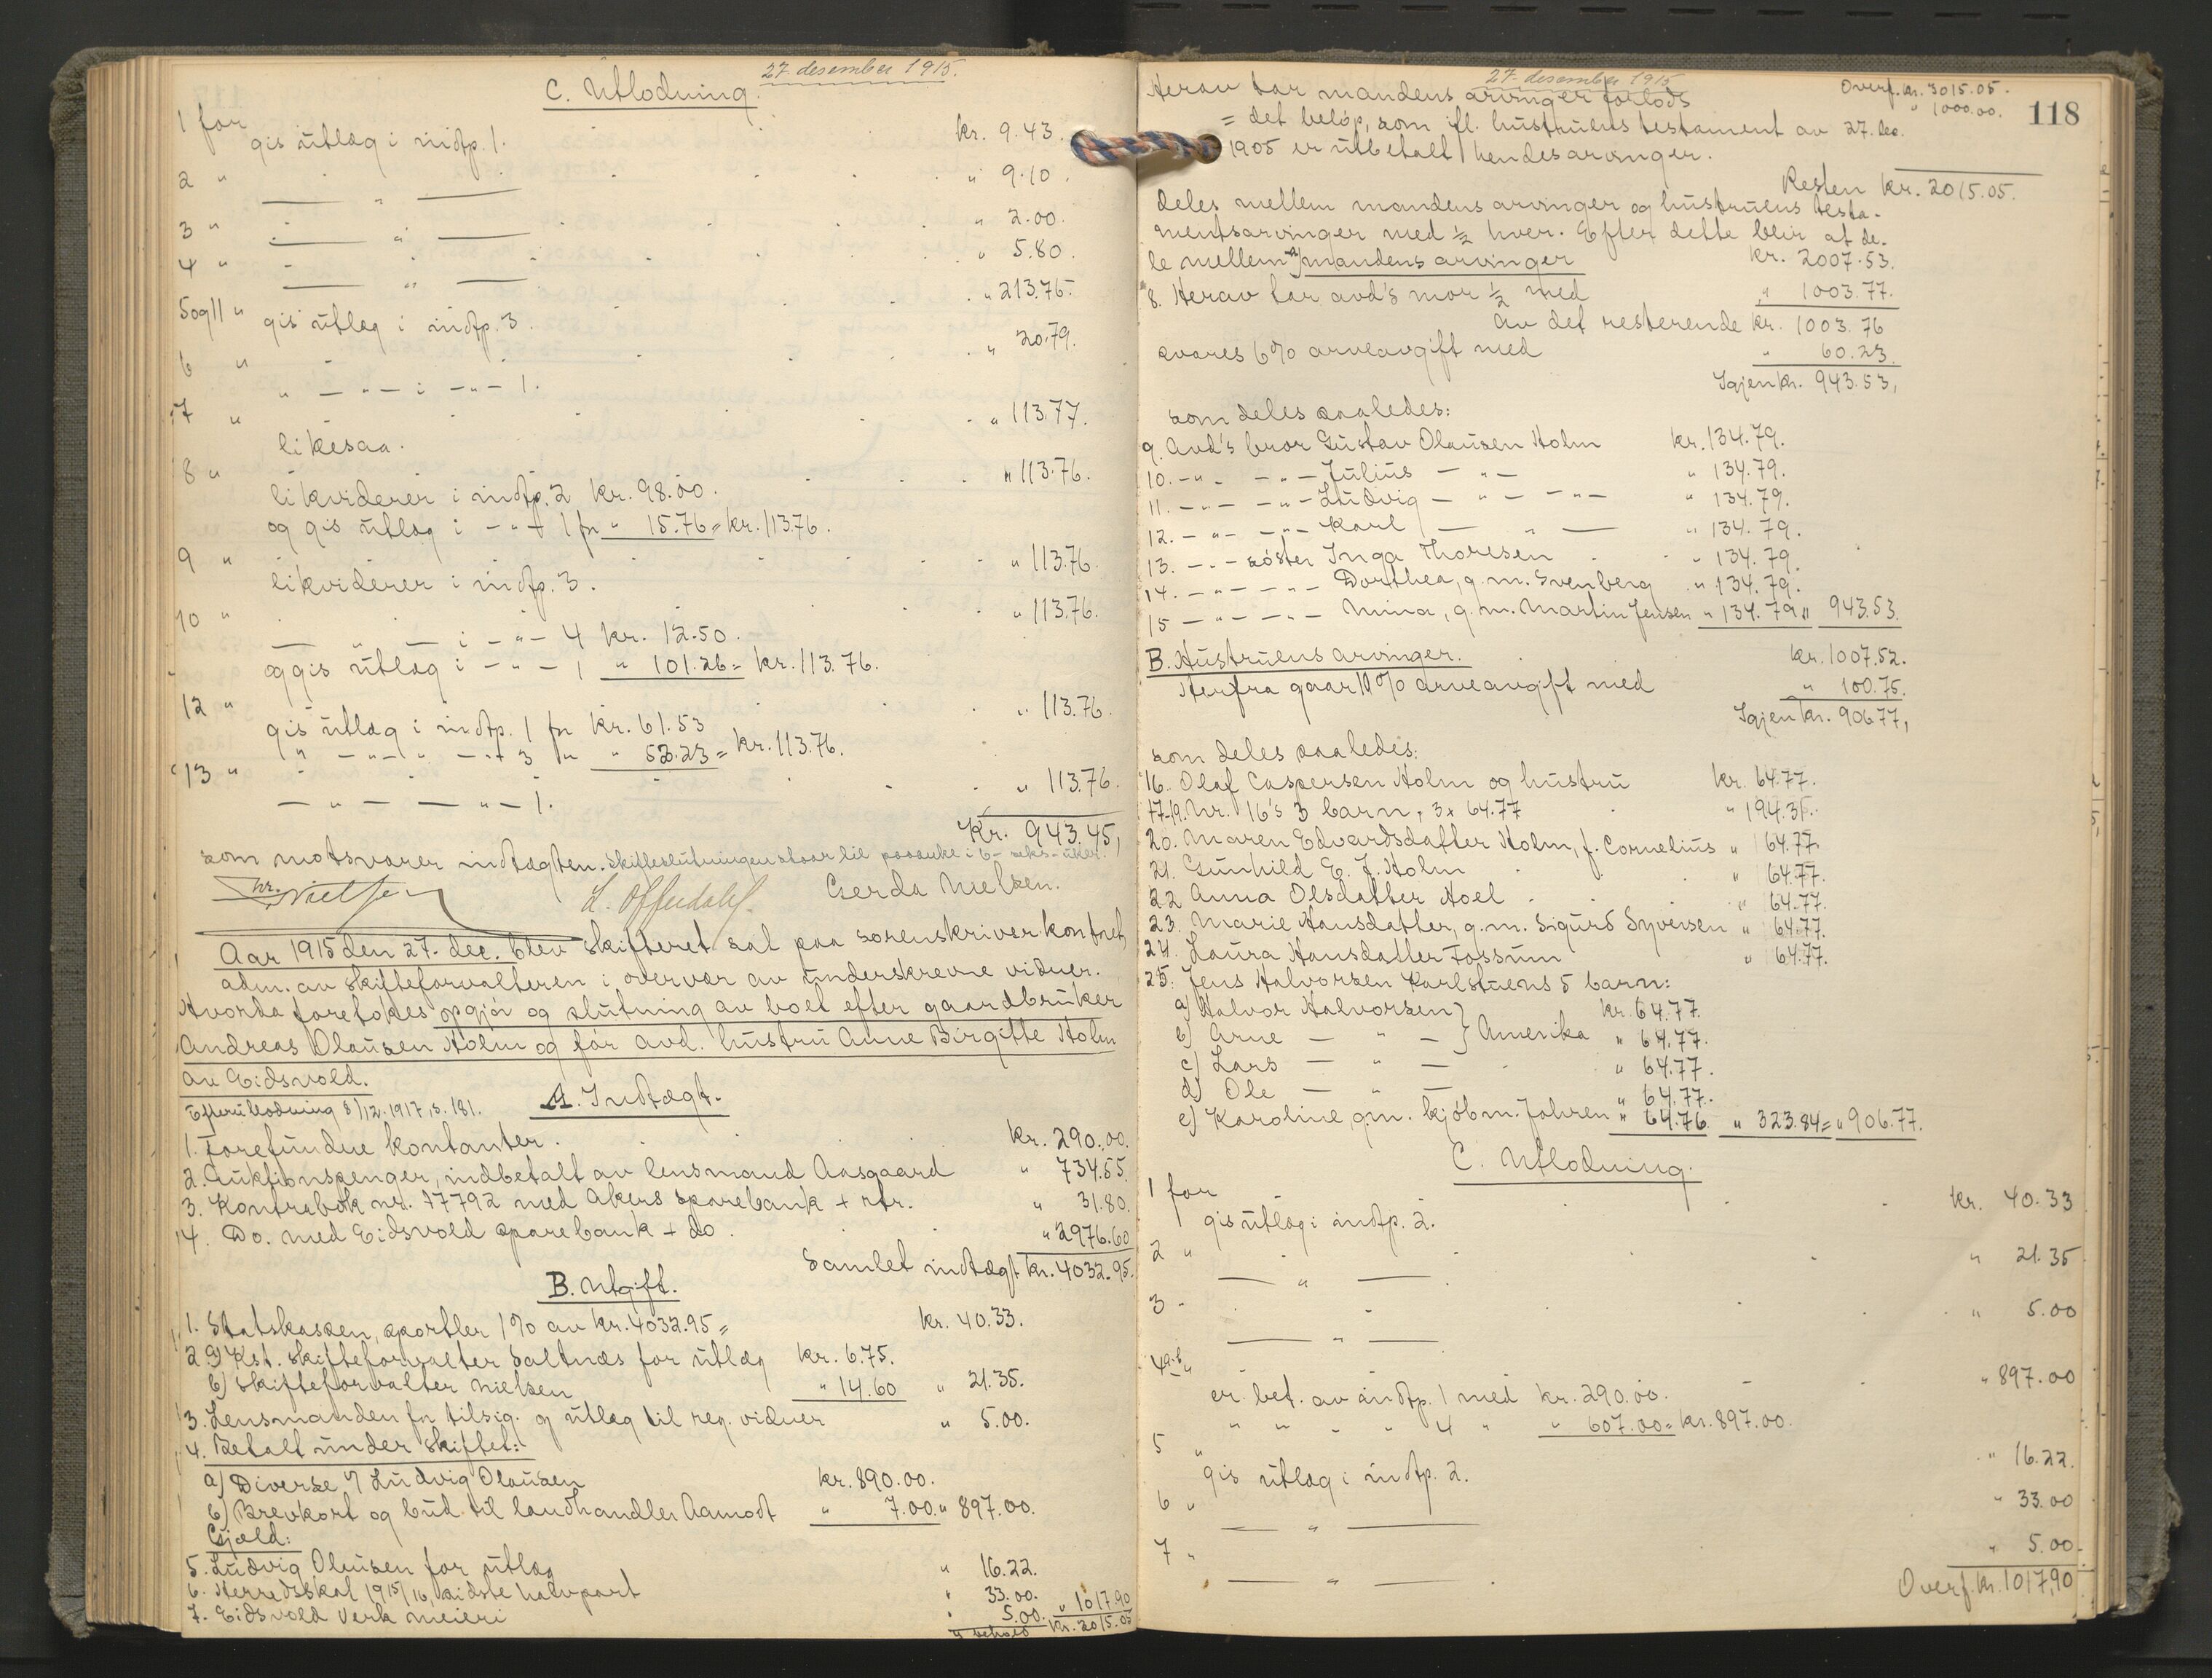 27. desember 1915.
C. Utlodning.
1 for . . . kr. 9.43.
gis utlæg i indtp. 1.
2 " . . . . " 9.10.
— " —
3 " . . . . " 2.00.
— " —
4 " . . . . " 5.80.
— " —
5 og 11 " . . . . " 213.76.
gis utlæg i indtp. 3.
6 " . . . . " 20.79.
" — " — i — " — 1.
7 " . . . . " 113.77.
likesaa.
8 " . . . . " 113.76.
likviderer i indtp. 2 kr. 98.00.
og gis utlæg i — " — 1 fn " 15.76 = kr. 113.76.
9 " . . . . " 113.76.
likviderer i indtp. 3.
10 " . . . . " 113.76.
— " — i — " — 4 kr. 12.50.
og gis utlæg i — " — 1 " 101.26 = kr. 113.76.
12 " . . . . " 113.76.
gis utlæg i indtp. 1 fn kr. 61.53
" — " — " — " 3 fn " 52.23 = kr. 113.76.
13 " . . . . " 113.76.
— " — — " — 1.
Kr. 943.45,
som motsvarer indtægten. Skifteslutningen staar til paaanke i 6 - seks - uker.
Nielsen L. Offerdahl. Gerda Nielsen.
Aar 1915 den 27. dec. blev skifteret sat paa sorenskriverkontoret,
adm. av skifteforvalteren i overvær av underskrevne vidner.
Hvorda foretokes opgjør og slutning av boet efter gaardbruker
Andreas Olausen Holm og før avd. hustru Anne Birgitte Holm
av Eidsvold.
Efterutlodning 8/12. 1917, s. 181.
A. Indtægt.
1. Forefundne kontanter . . . kr. 290.00.
2. Auktionspenger, indbetalt av lensmand Aasgaard " 734.55.
3. Kontrabok nr. 17792 med Akers sparebank + rtr. " 31.80.
4. Do. med Eidsvold sparebank + do . . " 2976.60
Samlet indtægt kr. 4032.95.
B. Utgift.
1. Statskassen, sportler 1% av kr. 4032.95 = kr. 40.33.
2 a) Kst. skifteforvalter Saltnæs for utlæg kr. 6.75.
b) Skifteforvalter Nielsen " 14.60 " 21.35.
3. Lensmanden for tilsig. og utlæg til reg. vidner " 5.00.
4. Betalt under skiftet:
a) Diverse v/ Ludvig Olausen kr. 890.00.
b) Brevkort og bud til landhandler Aamodt " 7.00. " 897.00.
Gjæld:
5. Ludvig Olausen for utlæg " 16.22.
6. Herredsskat 1915/16, sidste halvpart " 33.00.
7. Eidsvold Verk meieri " 5.00. " 1017.90
I behold kr. 3015.05
27. desember 1915
118
Overf. kr. 3015.05.
Herav tar mandens arvinger forlods " 1000.00.
= det beløp, som ifl. hustruens testament av 27. dec.
1905 er utbetalt hendes arvinger.
Resten kr. 2015.05.
deles mellem mandens arvinger og hustruens testa-
mentsarvinger med ½ hver. Efter dette blir at de-
le mellem A) mandens arvinger kr. 2007.53.
8. Herav tar avd's mor ½ med " 1003.77.
Av det resterende kr. 1003.76
svares 6% arveavgift med " 60.23.
Igjen kr. 943.53,
som deles saaledes:
9. Avd's bror Gustav Olausen Holm kr. 134.79.
10. — " — — " — Julius — " — " 134.79.
11. — " — — " — Ludvig — " — — " — " 134.79.
12. — " — — " — Karl — " — " 134.79.
13. — " — søster Inga Thoresen . . " 134.79.
14. — " — — " — Dorthea, g. m. Svenberg " 134.79.
15 — " — — " — Mina, g. m. Martin Jensen " 134.79 " 943.53.
B. Hustruens arvinger. kr. 1007.52.
Herfra gaar 10% arveavgift med " 100.75.
Igjen kr. 906.77,
som deles saaledes:
16. Olaf Caspersen Holm og hustru kr. 64.77.
17-19. Nr. 16's 3 barn, 3 x 64.77 . " 194.31.
20. Maren Edvardsdatter Holm, f. Cornelius " 64.77.
21. Gunhild E. J. Holm . " 64.77.
22 Anna Olsdatter Hoel . . " 64.77.
23. Marie Hansdatter, g. m. Sigurd Syversen " 64.77.
24. Laura Hansdatter Fossum " 64.77.
25. Jens Halvorsen Karlstuens 5 barn:
a) Halvor Halvorsen } kr. 64.77.
b) Arne — " — } Amerika " 64.77.
c) Lars — " — " 64.77.
d) Ole — " — " 64.77.
e) Karoline, g. m. kjøbm. Jahren " 64.76. " 323.84 = " 906.77.
C. Utlodning.
1 for . . . kr. 40.33
gis utlæg i indtp. 2.
2 " . . . " 21.35
— " —
3 " . . . " 5.00
— " —
4 a-b " . . . " 897.00
er bet. av indtp. 1 med kr. 290.00.
" " " " 4 " " 607.00 = kr. 897.00.
5 " . . . " 16.22.
gis utlæg i indtp. 2.
6 " . . . " 33.00
— " —
7 " . . . " 5.00
— " —
Overf. kr. 1017,90